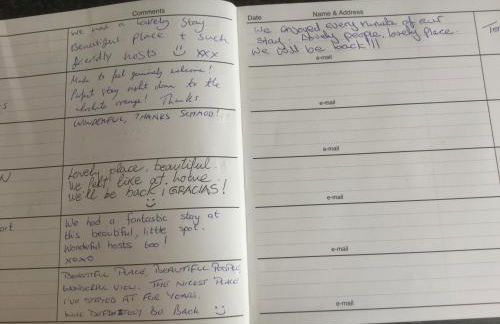 Comments
We had a lovely stay
Beautiful place + such
friendly hosts xxx
Made to feel genuinely welcome!
Perfect stay right down to the
chocolate orange! Thanks
WONDERFUL, THANKS
Lovely place, beautiful.
We felt like at home
We'll be back ¡GRACIAS!
We had a fantastic stay at
this beautiful, little spot.
Wonderful hosts too!
xoxo
BEAUTIFUL PLACE, BEAUTIFUL PEOPLE,
WONDERFUL VIEW. THE NICEST PLACE
I'VE STAYED AT FOR YEARS,
WILL DEFINITELY BE BACK
Date Name & Address
We enjoyed every minute of our
stay. Lovely people, lovely place.
We will be back!!!
e-mail
e-mail
e-mail
e-mail
e-mail
e-mail